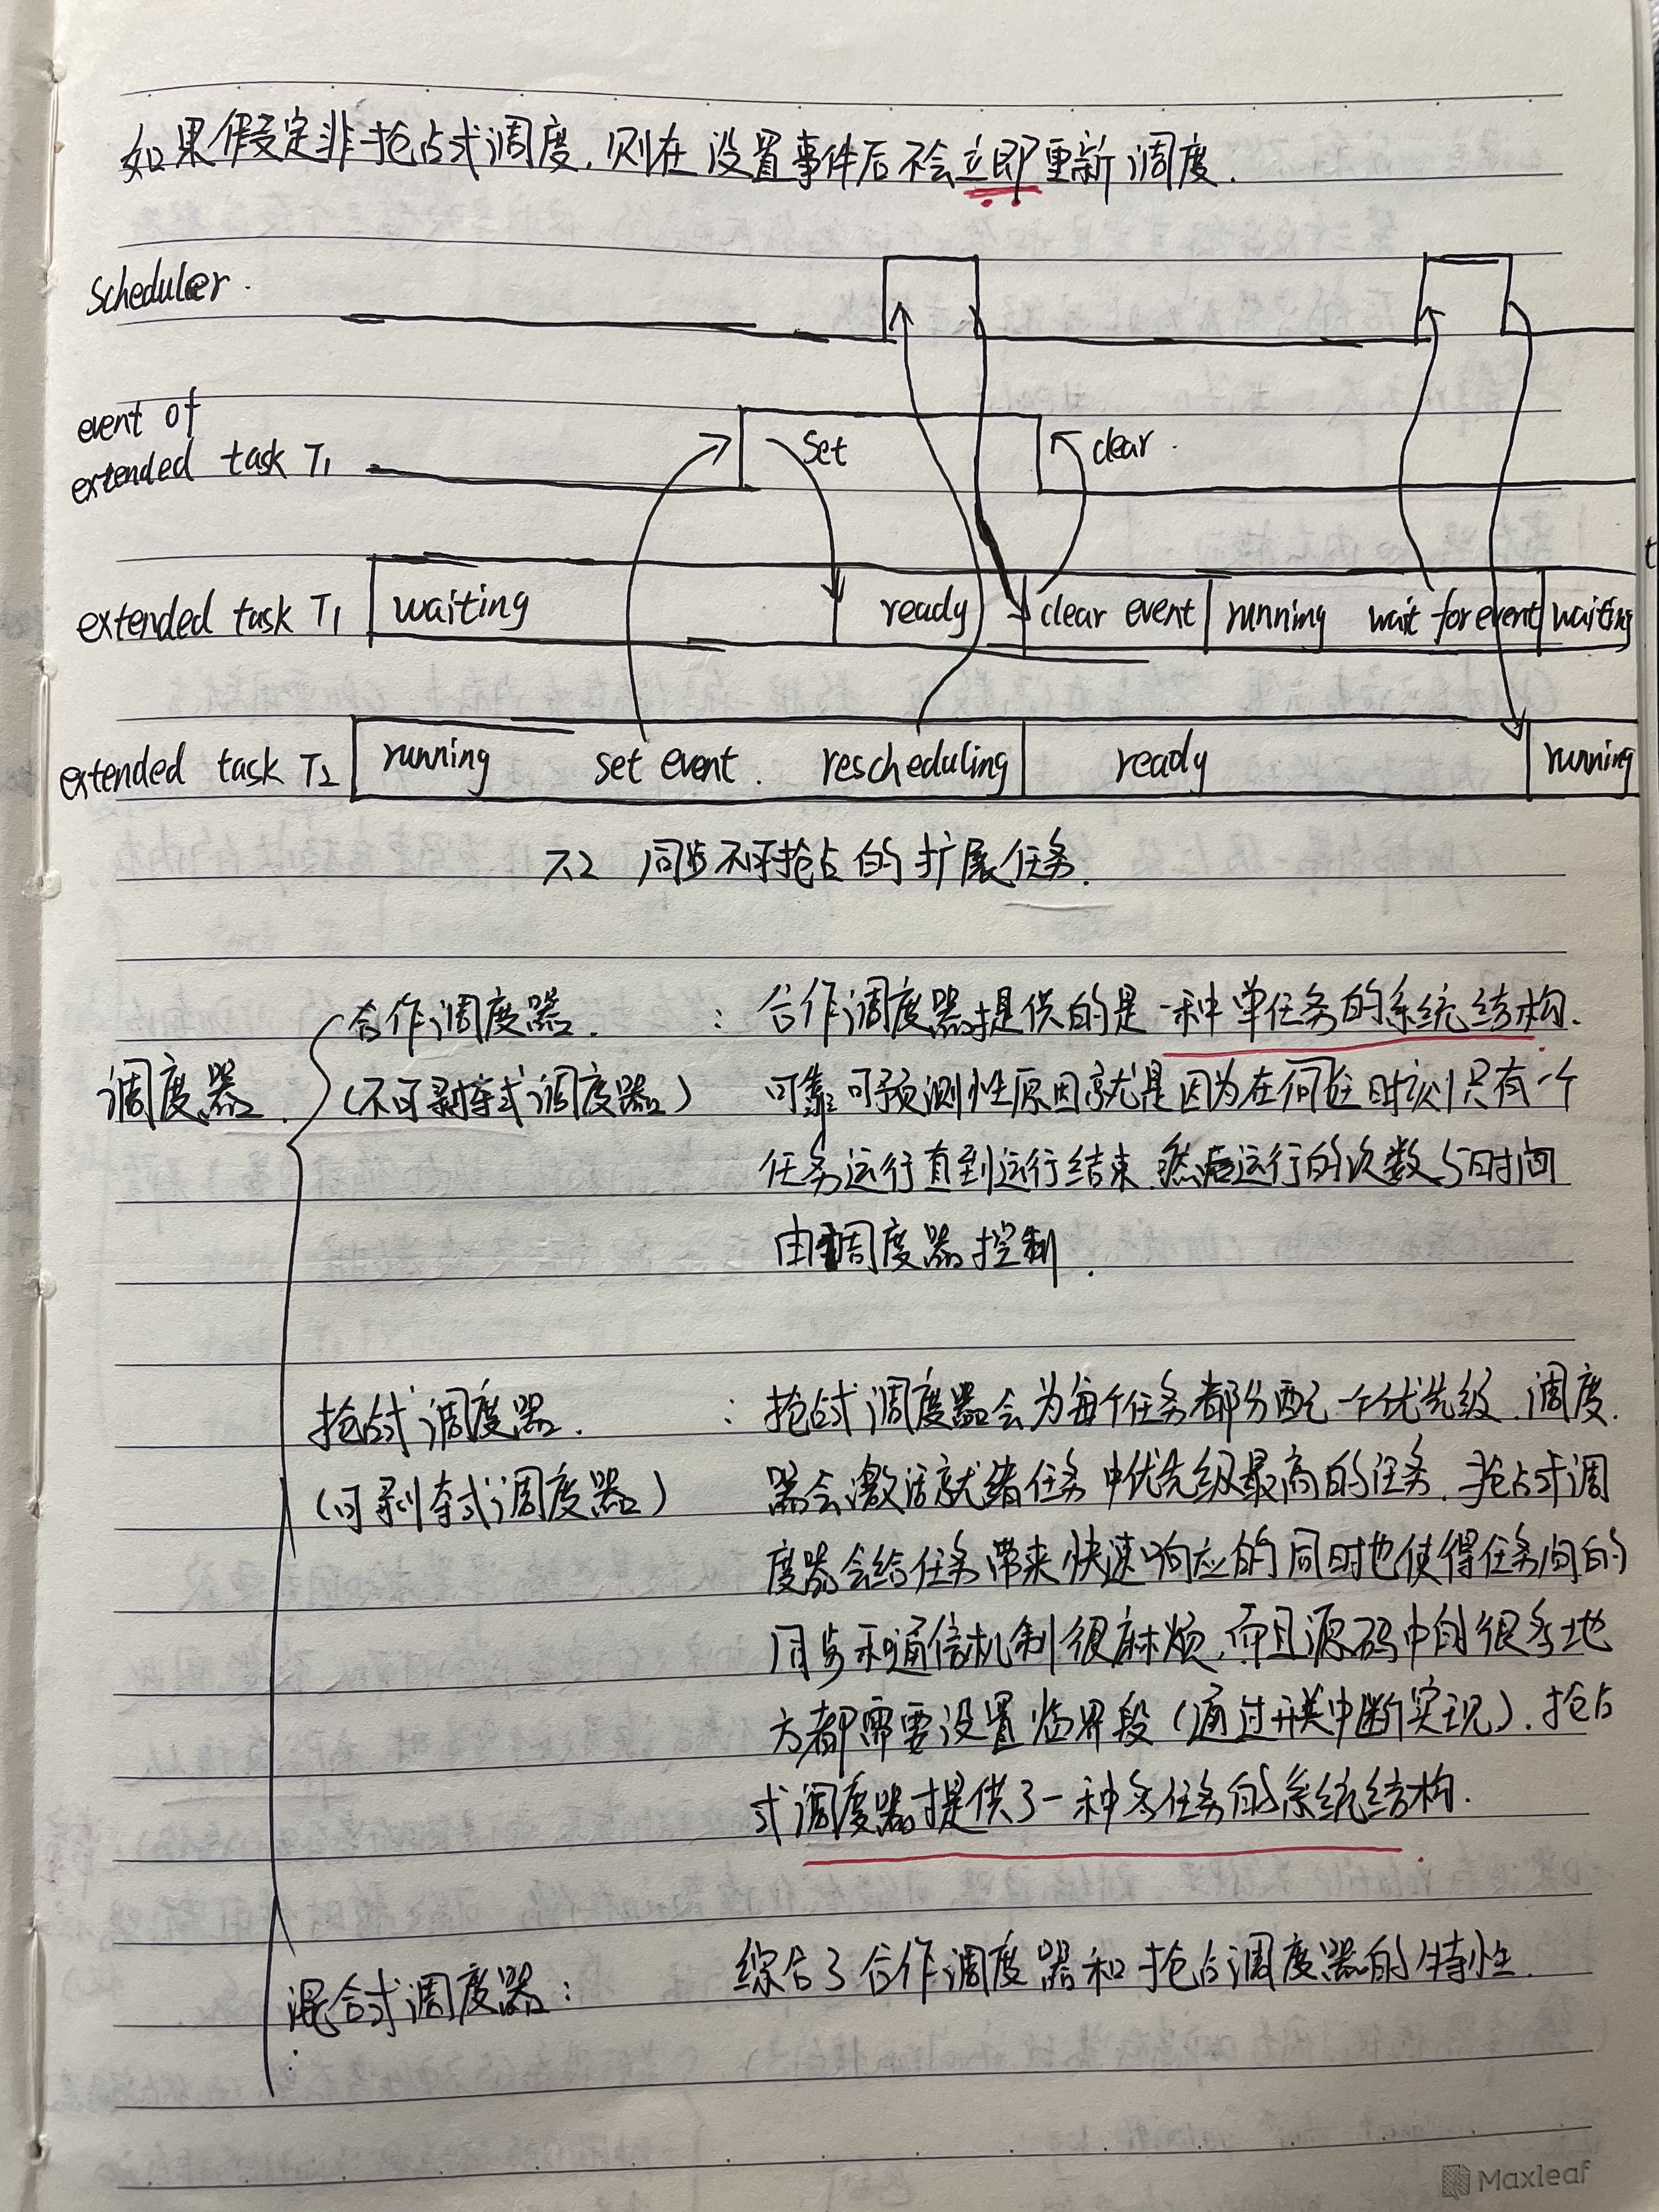 如果假定非抢占式调度,则在设置事件后不会立即重新调度.
Scheduler.
event of
extended task T1
set
clear.
t
extended task T1 waiting ready clear event running wait for event waiting
extended task T2 running set event. rescheduling ready running
7.2 同步不可抢占的扩展任务.
合作调度器. : 合作调度器提供的是一种单任务的系统结构.
调度器. (不可剥夺式调度器) 可靠可预测性原因就是因为在任何时刻只有一个
任务运行直到运行结束.然后运行的次数与时间
由调度器控制.
抢占式调度器. : 抢占式调度器会为每个任务都分配一个优先级.调度.
(可剥夺式调度器) 器会激活就绪任务中优先级最高的任务.抢占式调
度器会给任务带来快速响应的同时也使得任务间的
同步和通信机制很麻烦,而且源码中的很多地
方都需要设置临界段(通过开关中断实现).抢占
式调度器提供了一种多任务的系统结构.
混合式调度器: 综合了合作调度器和抢占调度器的特性.
Maxleaf